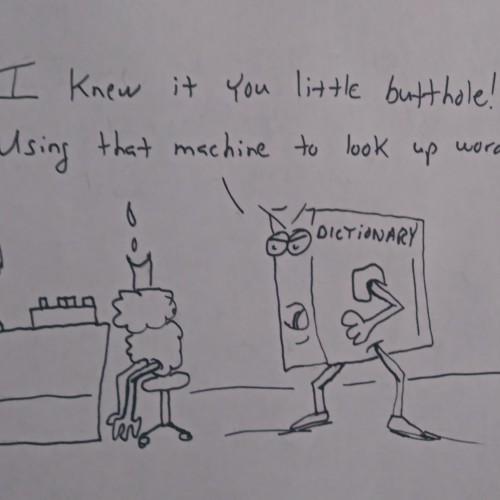 I Knew it you little butthole!
Using that machine to look up word
DICTIONARY